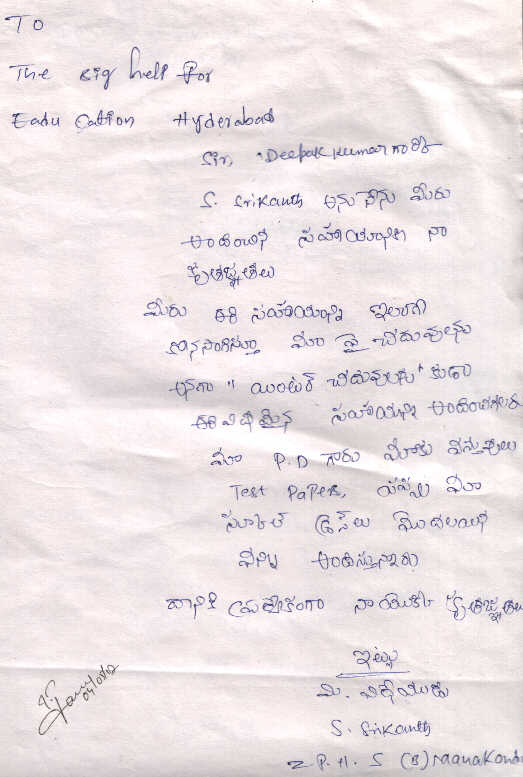 To
The Big help for
Eadu Cation Hyderabad
Sir, Deepak kumar గారికి
S. Srikanth అను నేను మీరు
అందించిన సహాయానికి నా
కృతజ్ఞతలు
మీరు ఈ సహాయాన్ని ఇలాగే
కొనసాగిస్తూ మా పై చదువులను
అనగా " యింటర్ చదువులకు" కుడా
ఈ విధమైన సహాయాన్ని అందించగలరు
మా P.D గారు మాకు వస్తువులు
Test Papers, మా
స్కూల్ డ్రస్‌లు మొదలయిన
వన్ని అందిస్తున్నారు
దానికి ప్రత్యేకంగా నా యొక్క కృతజ్ఞతలు
ఇట్లు
మీ. విధేయుడు
S. Srikanth
Z P. H. S (B) naanakonda